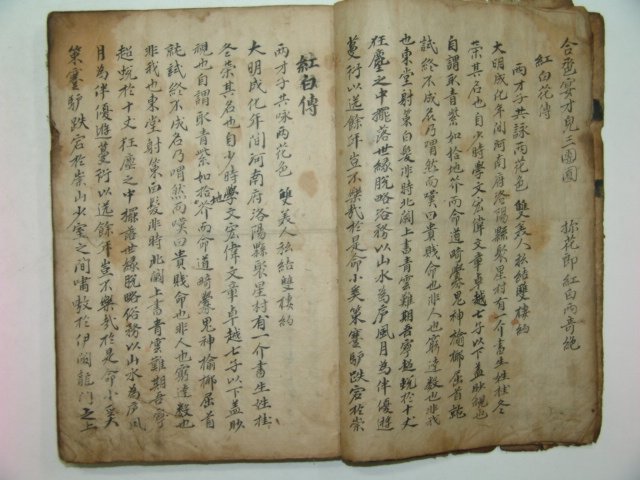 合巹宴才兒三團圓　称花即紅白兩奇絕
紅白花傳
兩才子共詠兩花色　雙美人私結雙樓約
大明成化年間河南府洛陽縣聚星村有一介書生姓桂冬
崇其名也自少時學文宏偉文章卓越七子以下盖眇視也
自謂取青紫如拾地芥而命道畸釁鬼神揄揶屈首就
試終不成名乃喟然而嘆曰貴賤命也非人也窮達數也非我
也東堂射策白髮非時北闕上書青雲難期吾寧超蛻於十丈
狂塵之中擺落世緣脫略俗務以山水為庐風月為伴優遊
蔓衍以送餘年豈不樂哉於是命小奚策蹇驴跌宕於崇
紅白傳
兩才子共咏兩花色　雙美人私結雙樓約
大明成化年間河南府洛陽縣聚星村有一介書生姓桂
冬崇其名也自少時學文宏偉文章卓越七子以下盖眇
視也自謂取青紫如拾地芥而命道畸釁鬼神揄揶屈首
就試終不成名乃喟然而嘆曰貴賤命也非人也窮達數也
非我也東堂射策白髮非時北闕上書青雲難期吾寧
超蛻於十丈狂塵之中擺落世緣脫略俗務以山水為庐風
月為伴優遊蔓衍以送餘年豈不樂哉於是命小奚
策蹇驴跌宕於崇山少室之間嘯敖於伊闕龍門之上